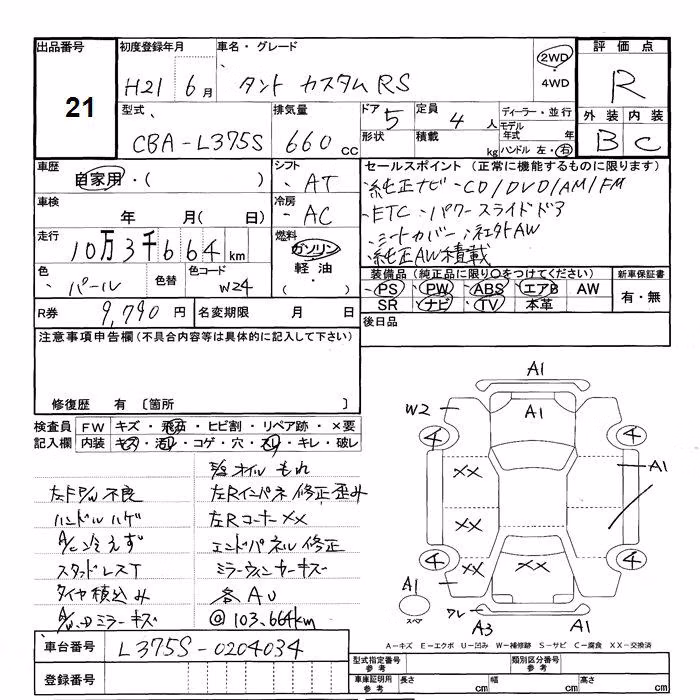 出品番号
21
初度登録年月
H21 6月
車名・グレード
タント カスタム RS
2WD
4WD
評価点
R
外装 内装
B C
型式
CBA-L375S
排気量
660 cc
ドア 5
形状
定員 4 人
積載 kg
ディーラー・並行
モデル年式 年
ハンドル 左・右
車歴
自家用・( )
シフト
AT
車検
年 月( 日)
冷房
AC
走行
10万3千664 km
燃料
ガソリン
軽油
・( )
色
パール
色替
色コード
W24
セールスポイント (正常に機能するものに限ります)
・純正ナビ・CD/DVD/AM/FM
・ETC・パワースライドドア
・シートカバー・社外AW
・純正AW積載
装備品(純正品に限り○をつけてください)
PS PW ABS エアB AW
SR ナビ TV 本革
新車保証書
有・無
R券 9,790 円
名変期限 月 日
後日品
注意事項申告欄(不具合内容等は具体的に記入して下さい)
修復歴 有 〔箇所 〕
検査員記入欄
FW キズ・飛石・ヒビ割・リペア跡・×要
内装 キズ・汚レ・コゲ・穴・スレ・キレ・破レ
オイルもれ
不良
左Rインパネ修正歪み
ハンドルハゲ
左Rコーナー××
A/C冷えず
エンドパネル修正
スタッドレスT
ミラーウィンカーキズ
タイヤ積込み
各AU
ミラーキズ
@103,664km
A1
A1
W2
4
4
××
A1
××
4
4
××
××
A1
スペア
ワレ
A3
A1
A-キズ E-エクボ U-凹み W-補修跡 S-サビ C-腐食 XX-交換済
車台番号 L375S-0204034
登録番号
型式指定番号 参考
類別区分番号 参考
車庫証明用 参考
長さ cm
幅 cm
高さ cm